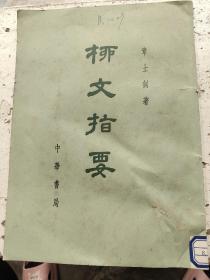 柳文指要
章士釗著
中華書局